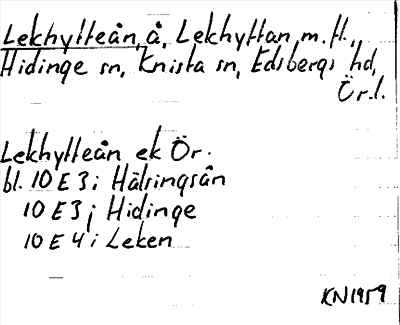 Lekhytteån, å, Lekhyttan, m. fl.,
Hidinge sn, Knista sn, Edsbergs hd,
Ör. l.
Lekhytteån ek Ör.
bl. 10 E 3 i Hälsingsån
10 E 3 j Hidinge
10 E 4 i Leken
KN1959